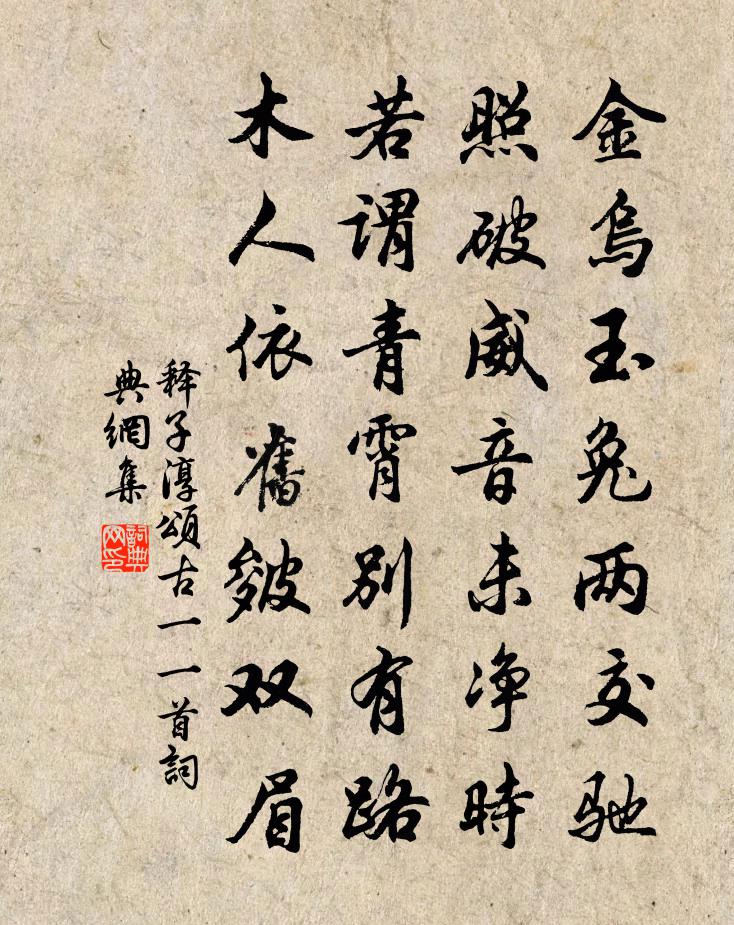 金烏玉兔两交驰
照破威音未净時
若谓青霄别有路
木人依舊皴双眉
释子淳頌古一一首詞
典網集
詞典网印